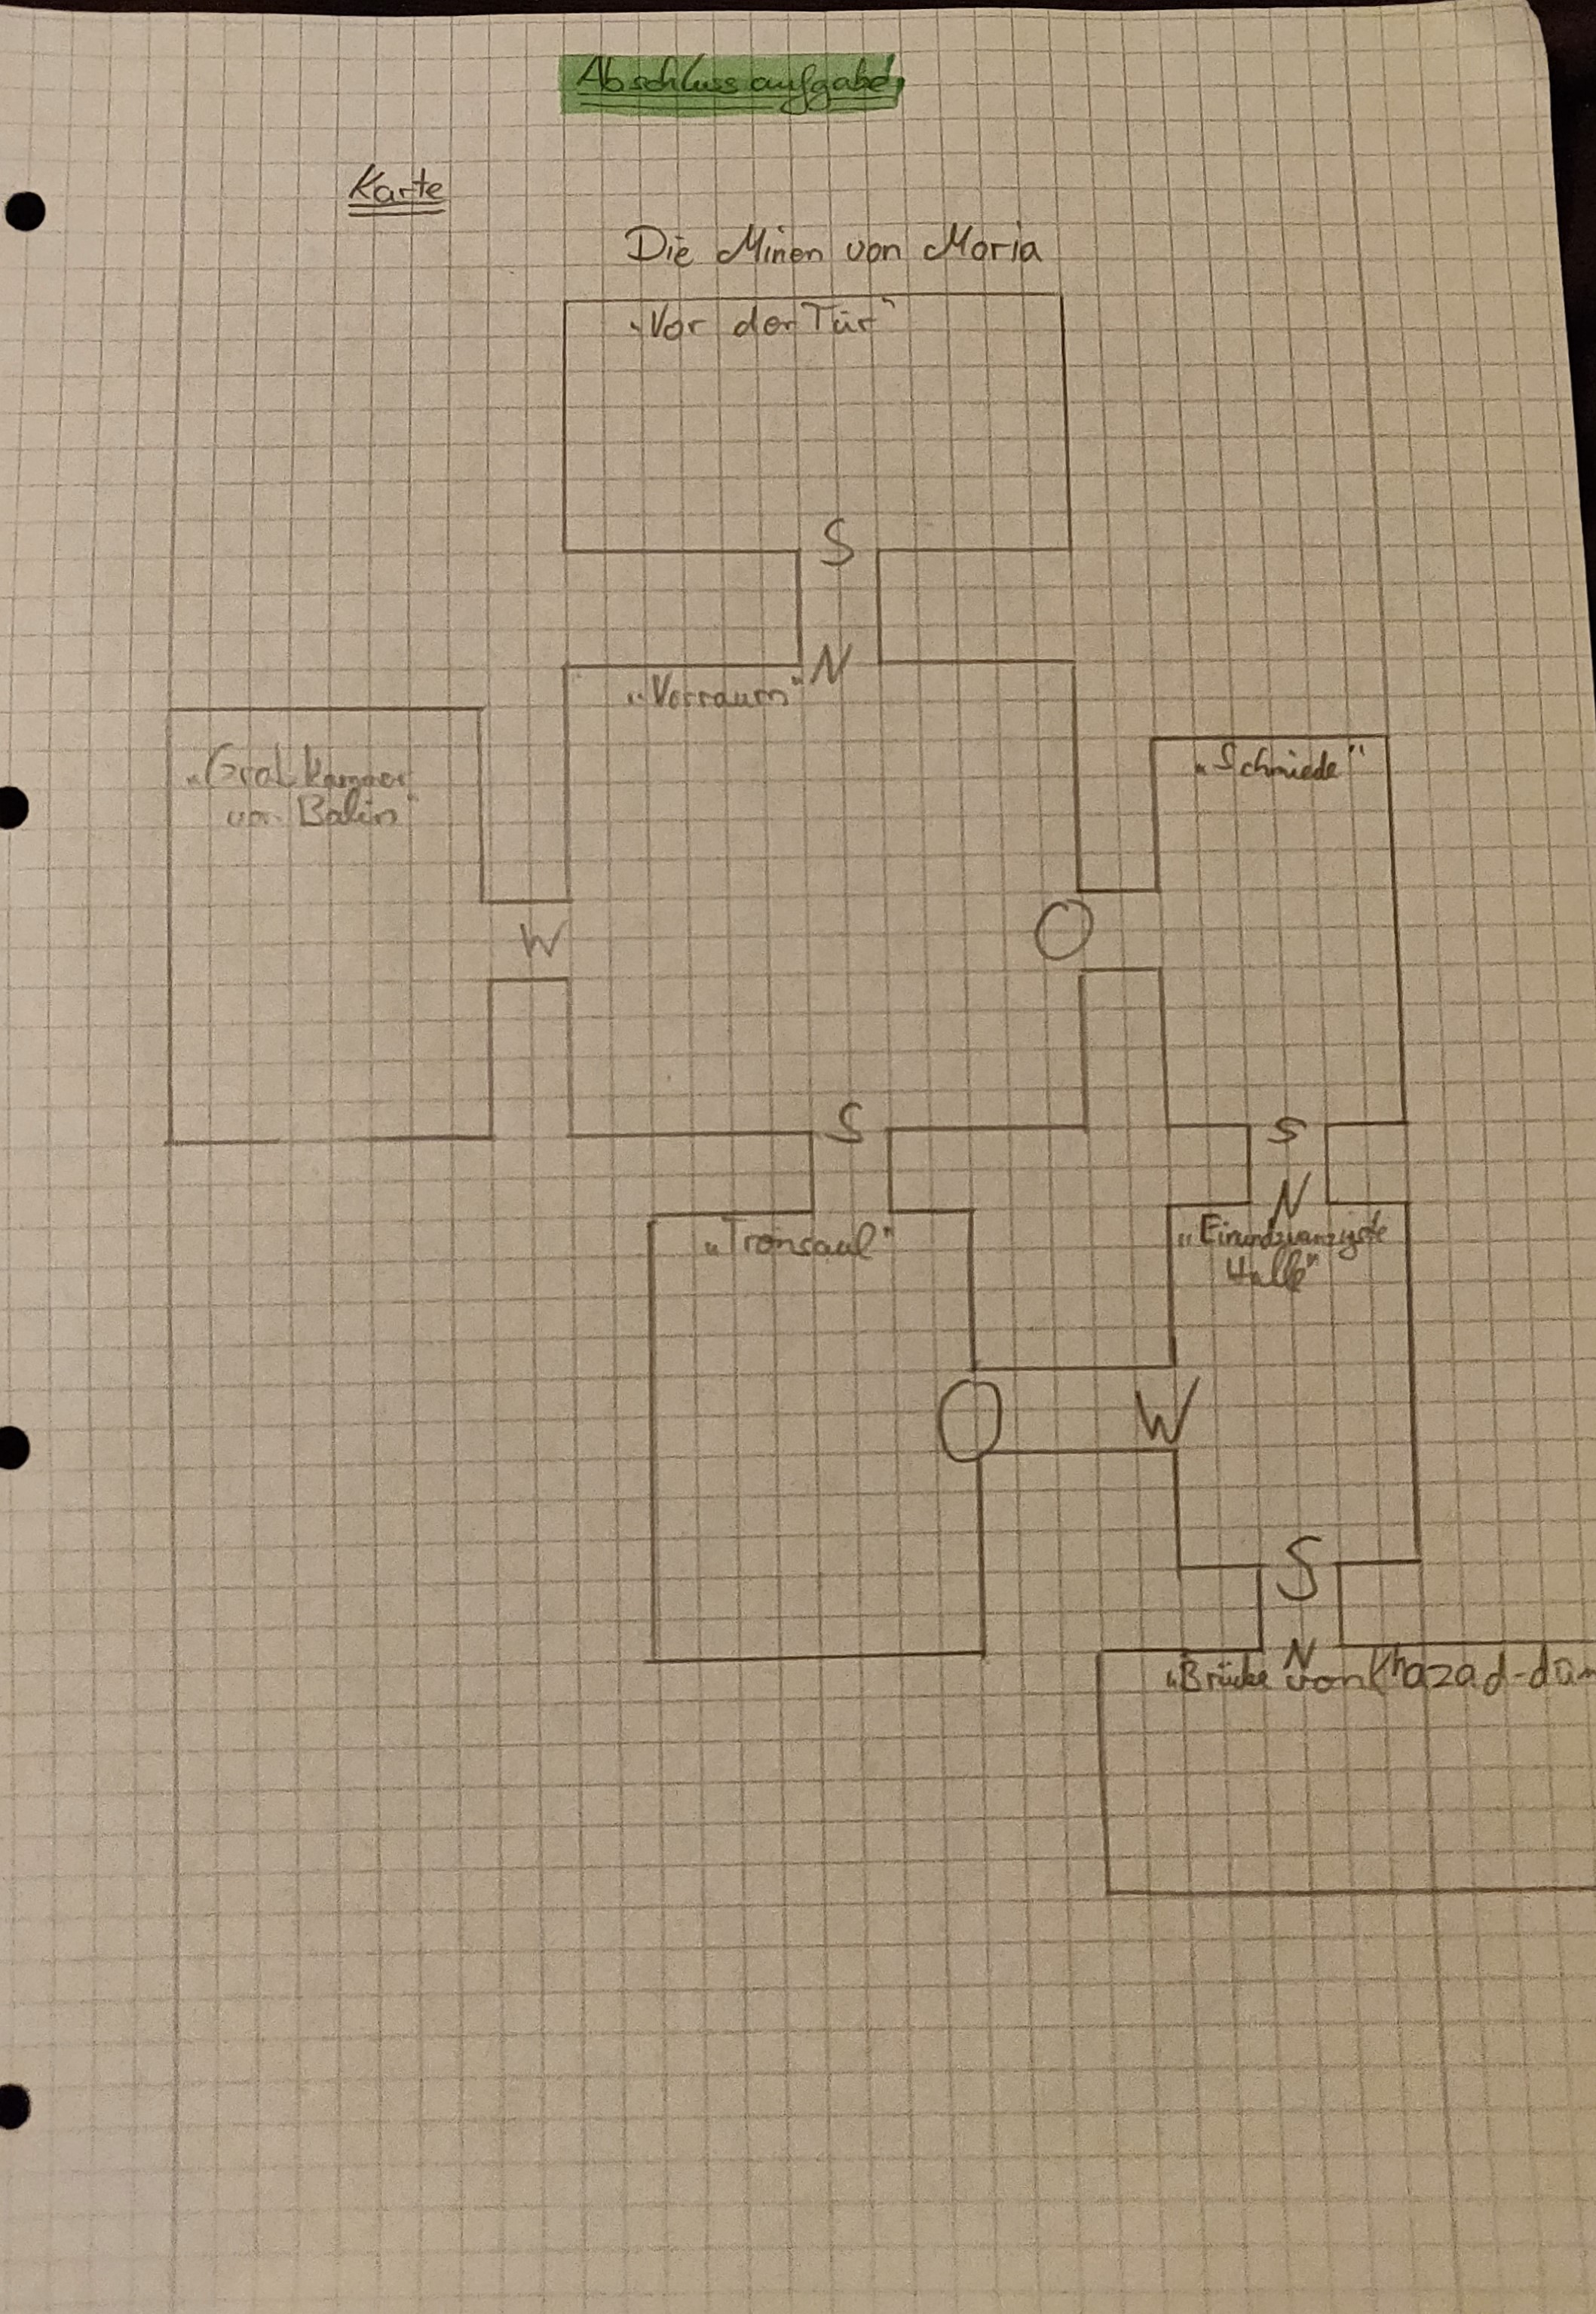 Abschlussaufgabe
Karte
Die Minen von Moria
„Vor der Tür"
S
N
„Vorraum"
„Grabkammer
von Balin"
„Schmiede"
W
O
S
S
N
„Tronsaal"
„Einundzwanzigste
Halle"
O
W
S
N
„Brücke von Khazad-dûm